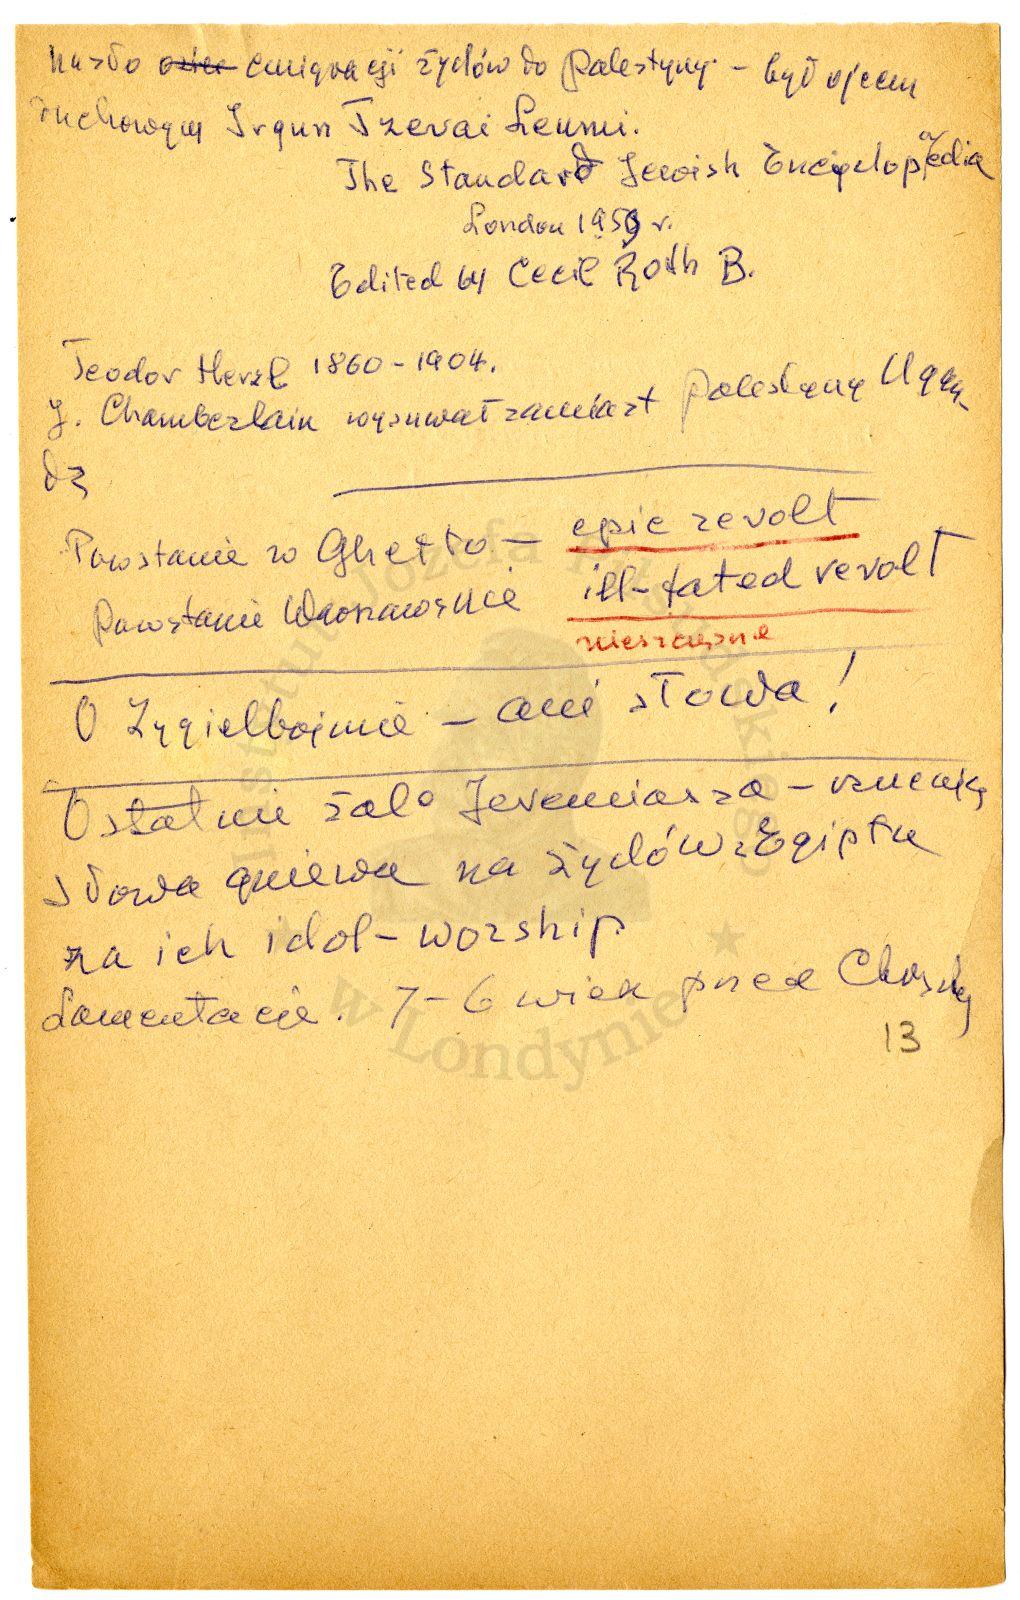 hasło ~~ojciec~~ emigracji żydów do Palestyny - był ojcem
duchowym Irgun Tzevai Leumi.
The Standard Jewish Encyclopaedia
London 1959 r.
Edited by Cecil Roth B.
Teodor Herzl 1860-1904.
J. Chamberlain wysuwał zamiast Palestyny Ugan-
dę
Powstanie w Ghetto - epic revolt
Powstanie Warszawskie ill-fated revolt
nieszczęsne
O Zygielbojmie - ani słowa!
Ostatnie żale Jeremiasza -
słowa gniewu na żydów z Egiptu
za ich idol-worship.
Lamentacje. 7-6 wiek przed
13
Instytut Józefa Piłsudskiego
w Londynie